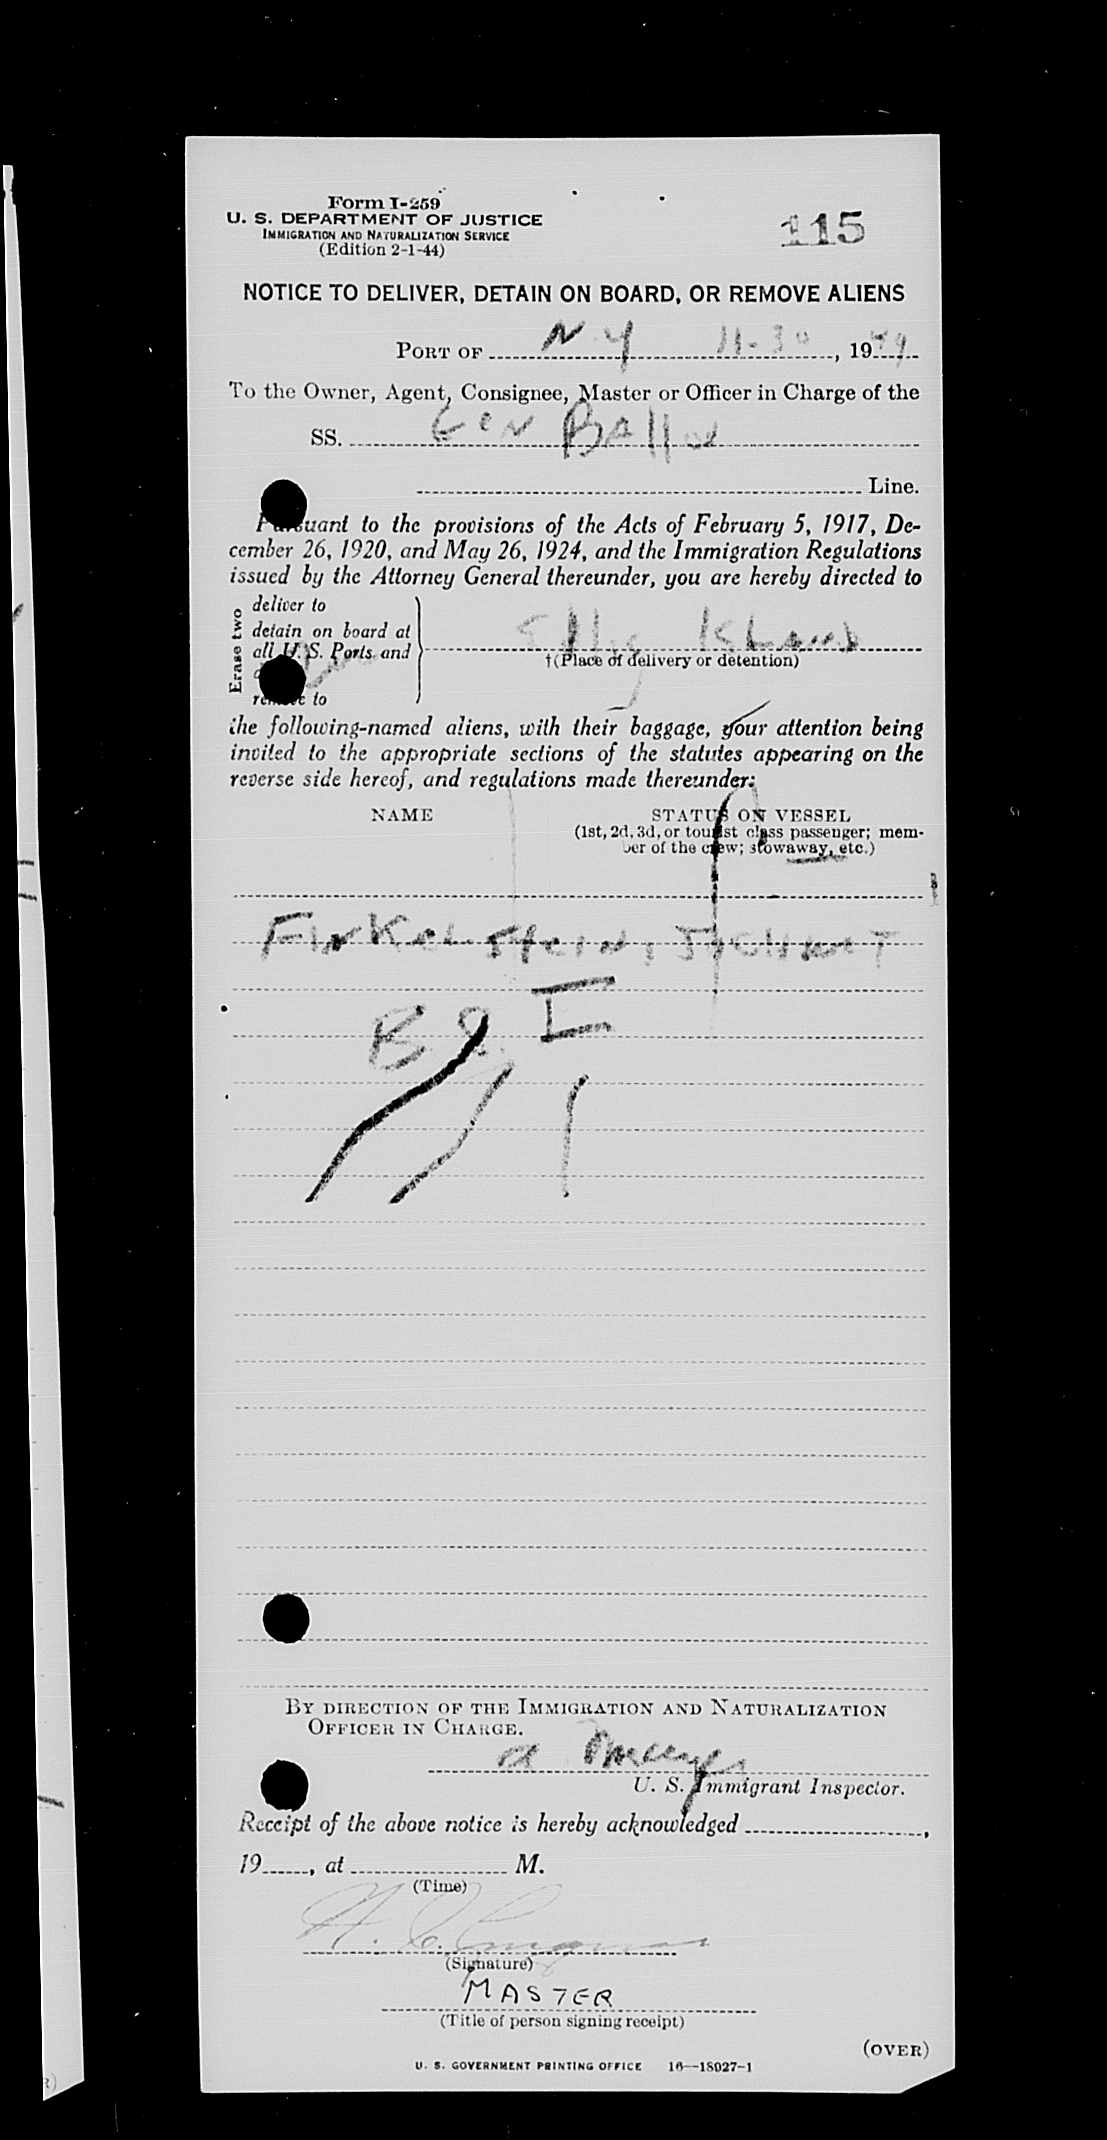 Form I-259
U. S. DEPARTMENT OF JUSTICE
IMMIGRATION AND NATURALIZATION SERVICE
(Edition 2-1-44)
115
NOTICE TO DELIVER, DETAIN ON BOARD, OR REMOVE ALIENS
PORT OF N.Y 11-30, 1949
To the Owner, Agent, Consignee, Master or Officer in Charge of the
SS. Gen Ballou
Line.
Pursuant to the provisions of the Acts of February 5, 1917, De-
cember 26, 1920, and May 26, 1924, and the Immigration Regulations
issued by the Attorney General thereunder, you are hereby directed to
Erase two
deliver to
detain on board at
all U. S. Ports and
remove to
Ellis Island
†(Place of delivery or detention)
the following-named aliens, with their baggage, your attention being
invited to the appropriate sections of the statutes appearing on the
reverse side hereof, and regulations made thereunder:
NAME STATUS ON VESSEL
(1st, 2d, 3d, or tourist class passenger; mem-
ber of the crew; stowaway, etc.)
Finkelstein,
B I
BY DIRECTION OF THE IMMIGRATION AND NATURALIZATION
OFFICER IN CHARGE.
U. S. Immigrant Inspector.
Receipt of the above notice is hereby acknowledged ,
19 , at M.
(Time)
(Signature)
MASTER
(Title of person signing receipt)
(OVER)
U. S. GOVERNMENT PRINTING OFFICE 16—18027-1